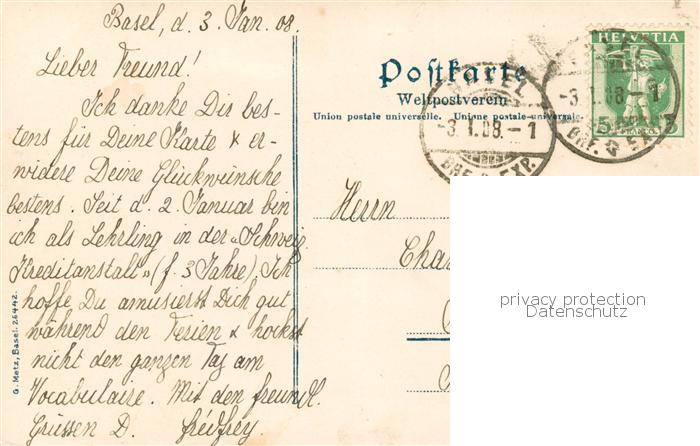 Basel, d. 3. Jan. 08.
Lieber Freund!
Ich danke Dir bes-
tens für Deine Karte & er-
widere Deine Glückwünsche
bestens. Seit d. 2. Januar bin
ich als Lehrling in der "Schweiz.
Kreditanstalt" (f. 3 Jahre). Ich
hoffe Du amüsierst Dich gut
während den Ferien & hockst
nicht den ganzen Tag am
Vocabulaire. Mit den freundl.
Grüssen D.
G. Metz, Basel. 26442.
Postkarte
Weltpostverein
Union postale universelle. Unione postale universale.
HELVETIA
BASEL
-3.I.08.-1
BRF. EXP.
-3.I.08-1
BRF.
5
Herrn
privacy protection
Datenschutz